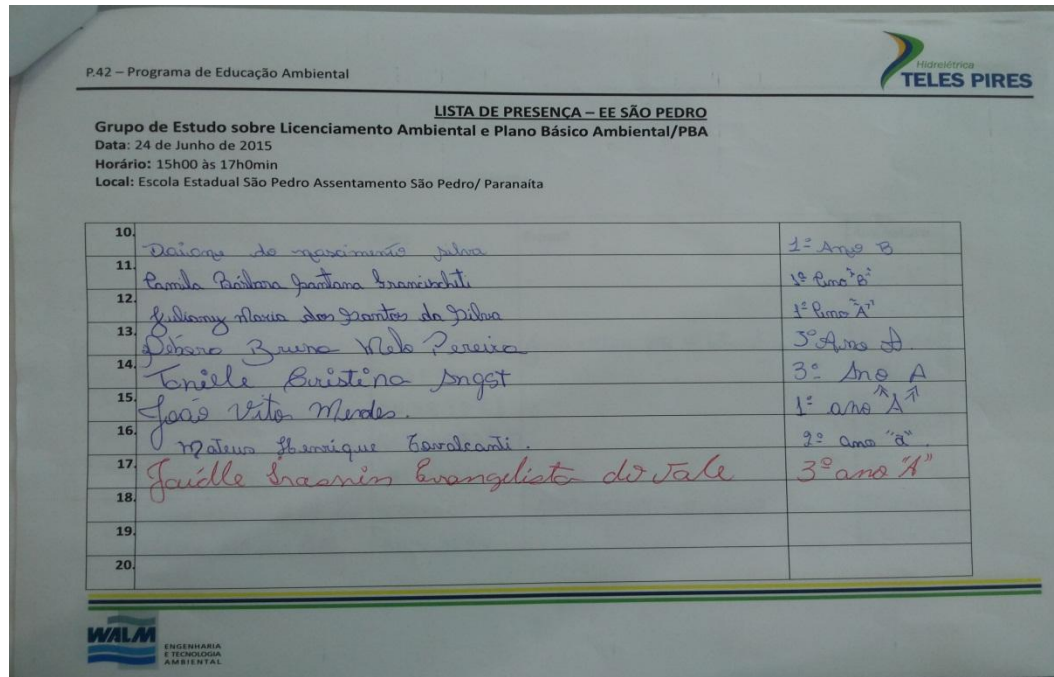 P.42 – Programa de Educação Ambiental
Hidrelétrica
TELES PIRES
LISTA DE PRESENÇA – EE SÃO PEDRO
Grupo de Estudo sobre Licenciamento Ambiental e Plano Básico Ambiental/PBA
Data: 24 de Junho de 2015
Horário: 15h00 às 17h0min
Local: Escola Estadual São Pedro Assentamento São Pedro/ Paranaíta
10. Daiane do nascimento silva 1º Ano B
11. Camila Bárbara Santana 1º Ano "B"
12. Juliany Maria dos Santos da Silva 1º Ano "A"
13. Débora Bruna Melo Pereira 3º Ano A
14. Tanielle Cristina Angst 3º Ano A
15. João Vitor Mendes. 1º ano "A"
16. Mateus Henrique Cavalcanti. 2º ano "a".
17. Evangelista do Vale 3º ano "A"
18.
19.
20.
WALM
ENGENHARIA
E TECNOLOGIA
AMBIENTAL